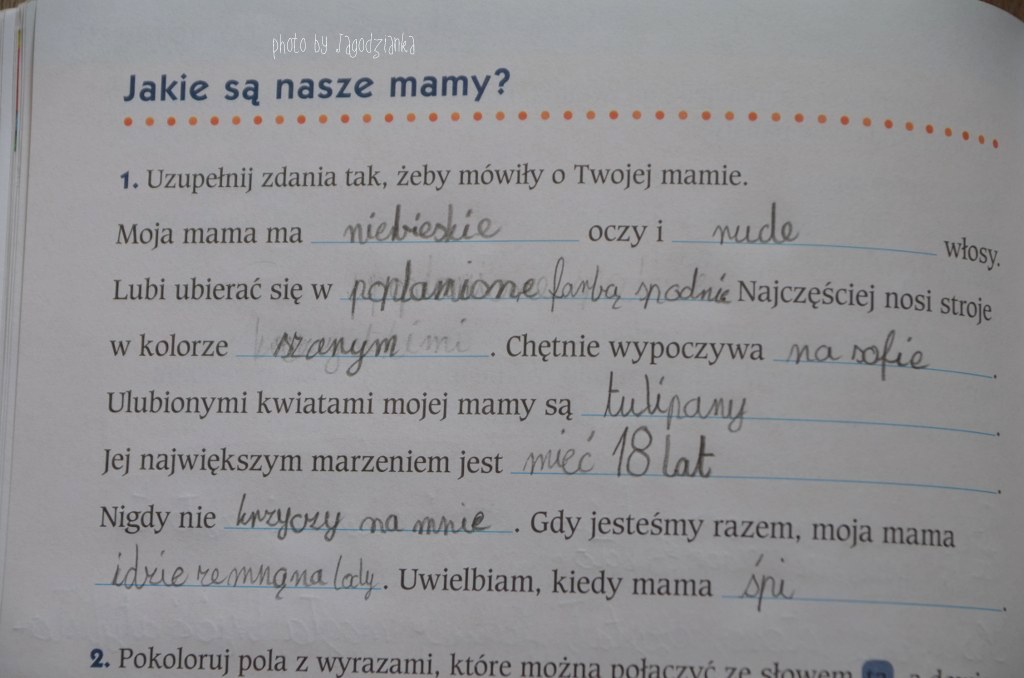 photo by Jagodzianka
Jakie są nasze mamy?
1. Uzupełnij zdania tak, żeby mówiły o Twojej mamie.
Moja mama ma niebieskie oczy i rude włosy.
Lubi ubierać się w poplamione farbą spodnie Najczęściej nosi stroje
w kolorze szarym. Chętnie wypoczywa na sofie.
Ulubionymi kwiatami mojej mamy są tulipany.
Jej największym marzeniem jest mieć 18 lat.
Nigdy nie krzyczy na mnie. Gdy jesteśmy razem, moja mama
idzie ze mną na lody. Uwielbiam, kiedy mama śpi.
2. Pokoloruj pola z wyrazami, które można połączyć ze słowem